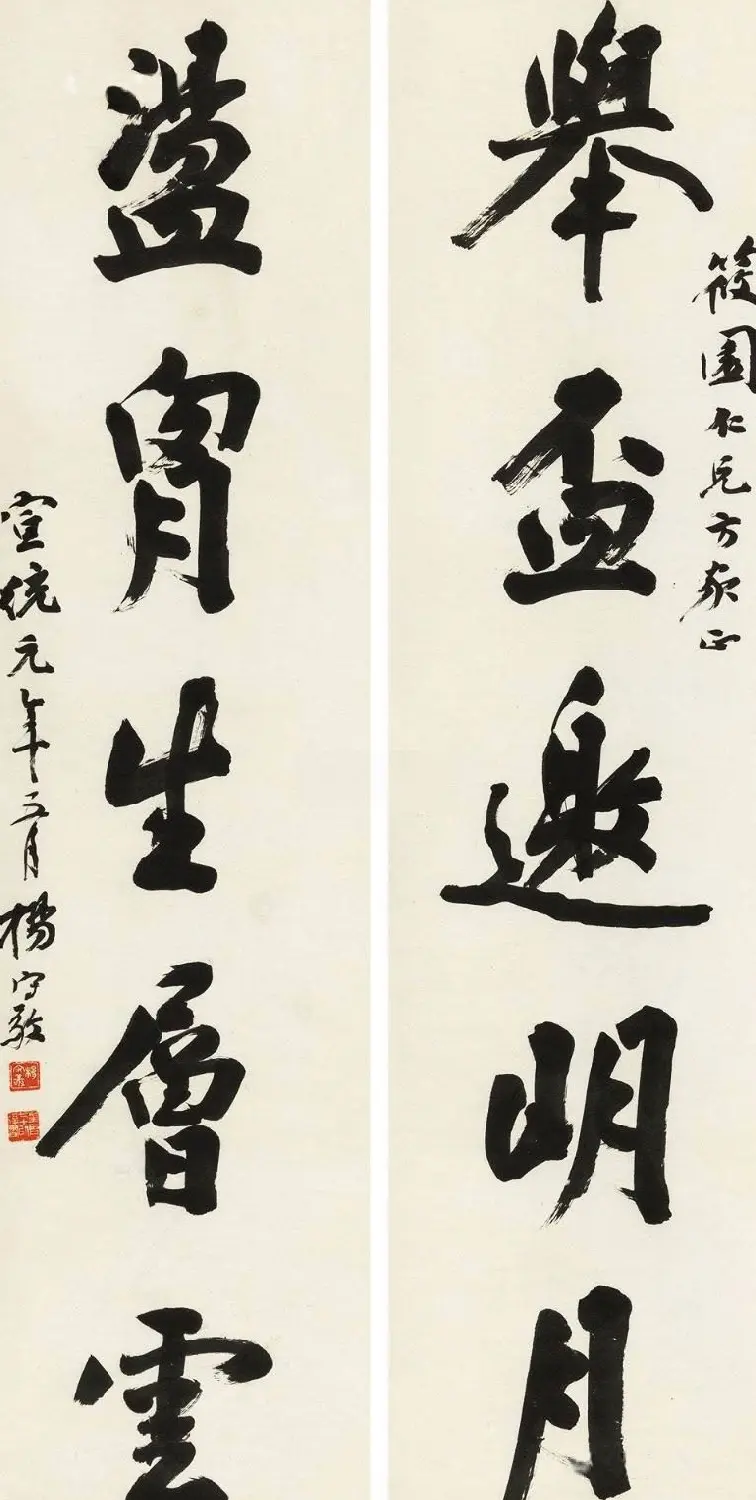 筱園仁兄方家正
舉盃邀明月
盪胷生層雲
宣統元年五月楊守敬